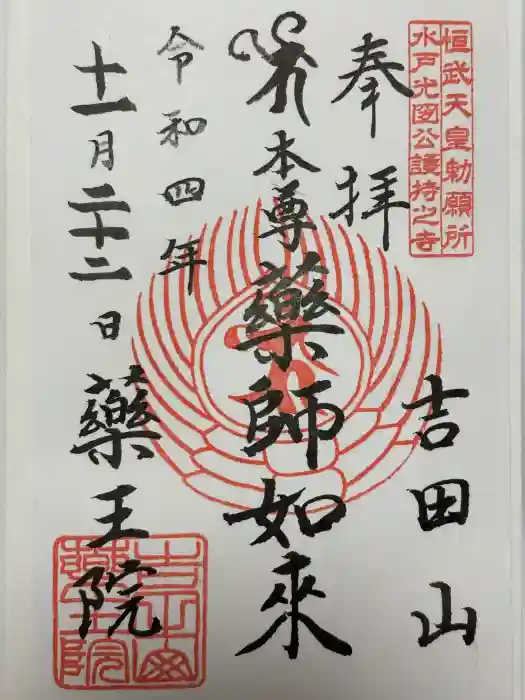 恒武天皇勅願所
水戸光圀公護持之寺
奉拝
吉田山
本尊薬師如來
令和四年
十一月二十二日
薬王院